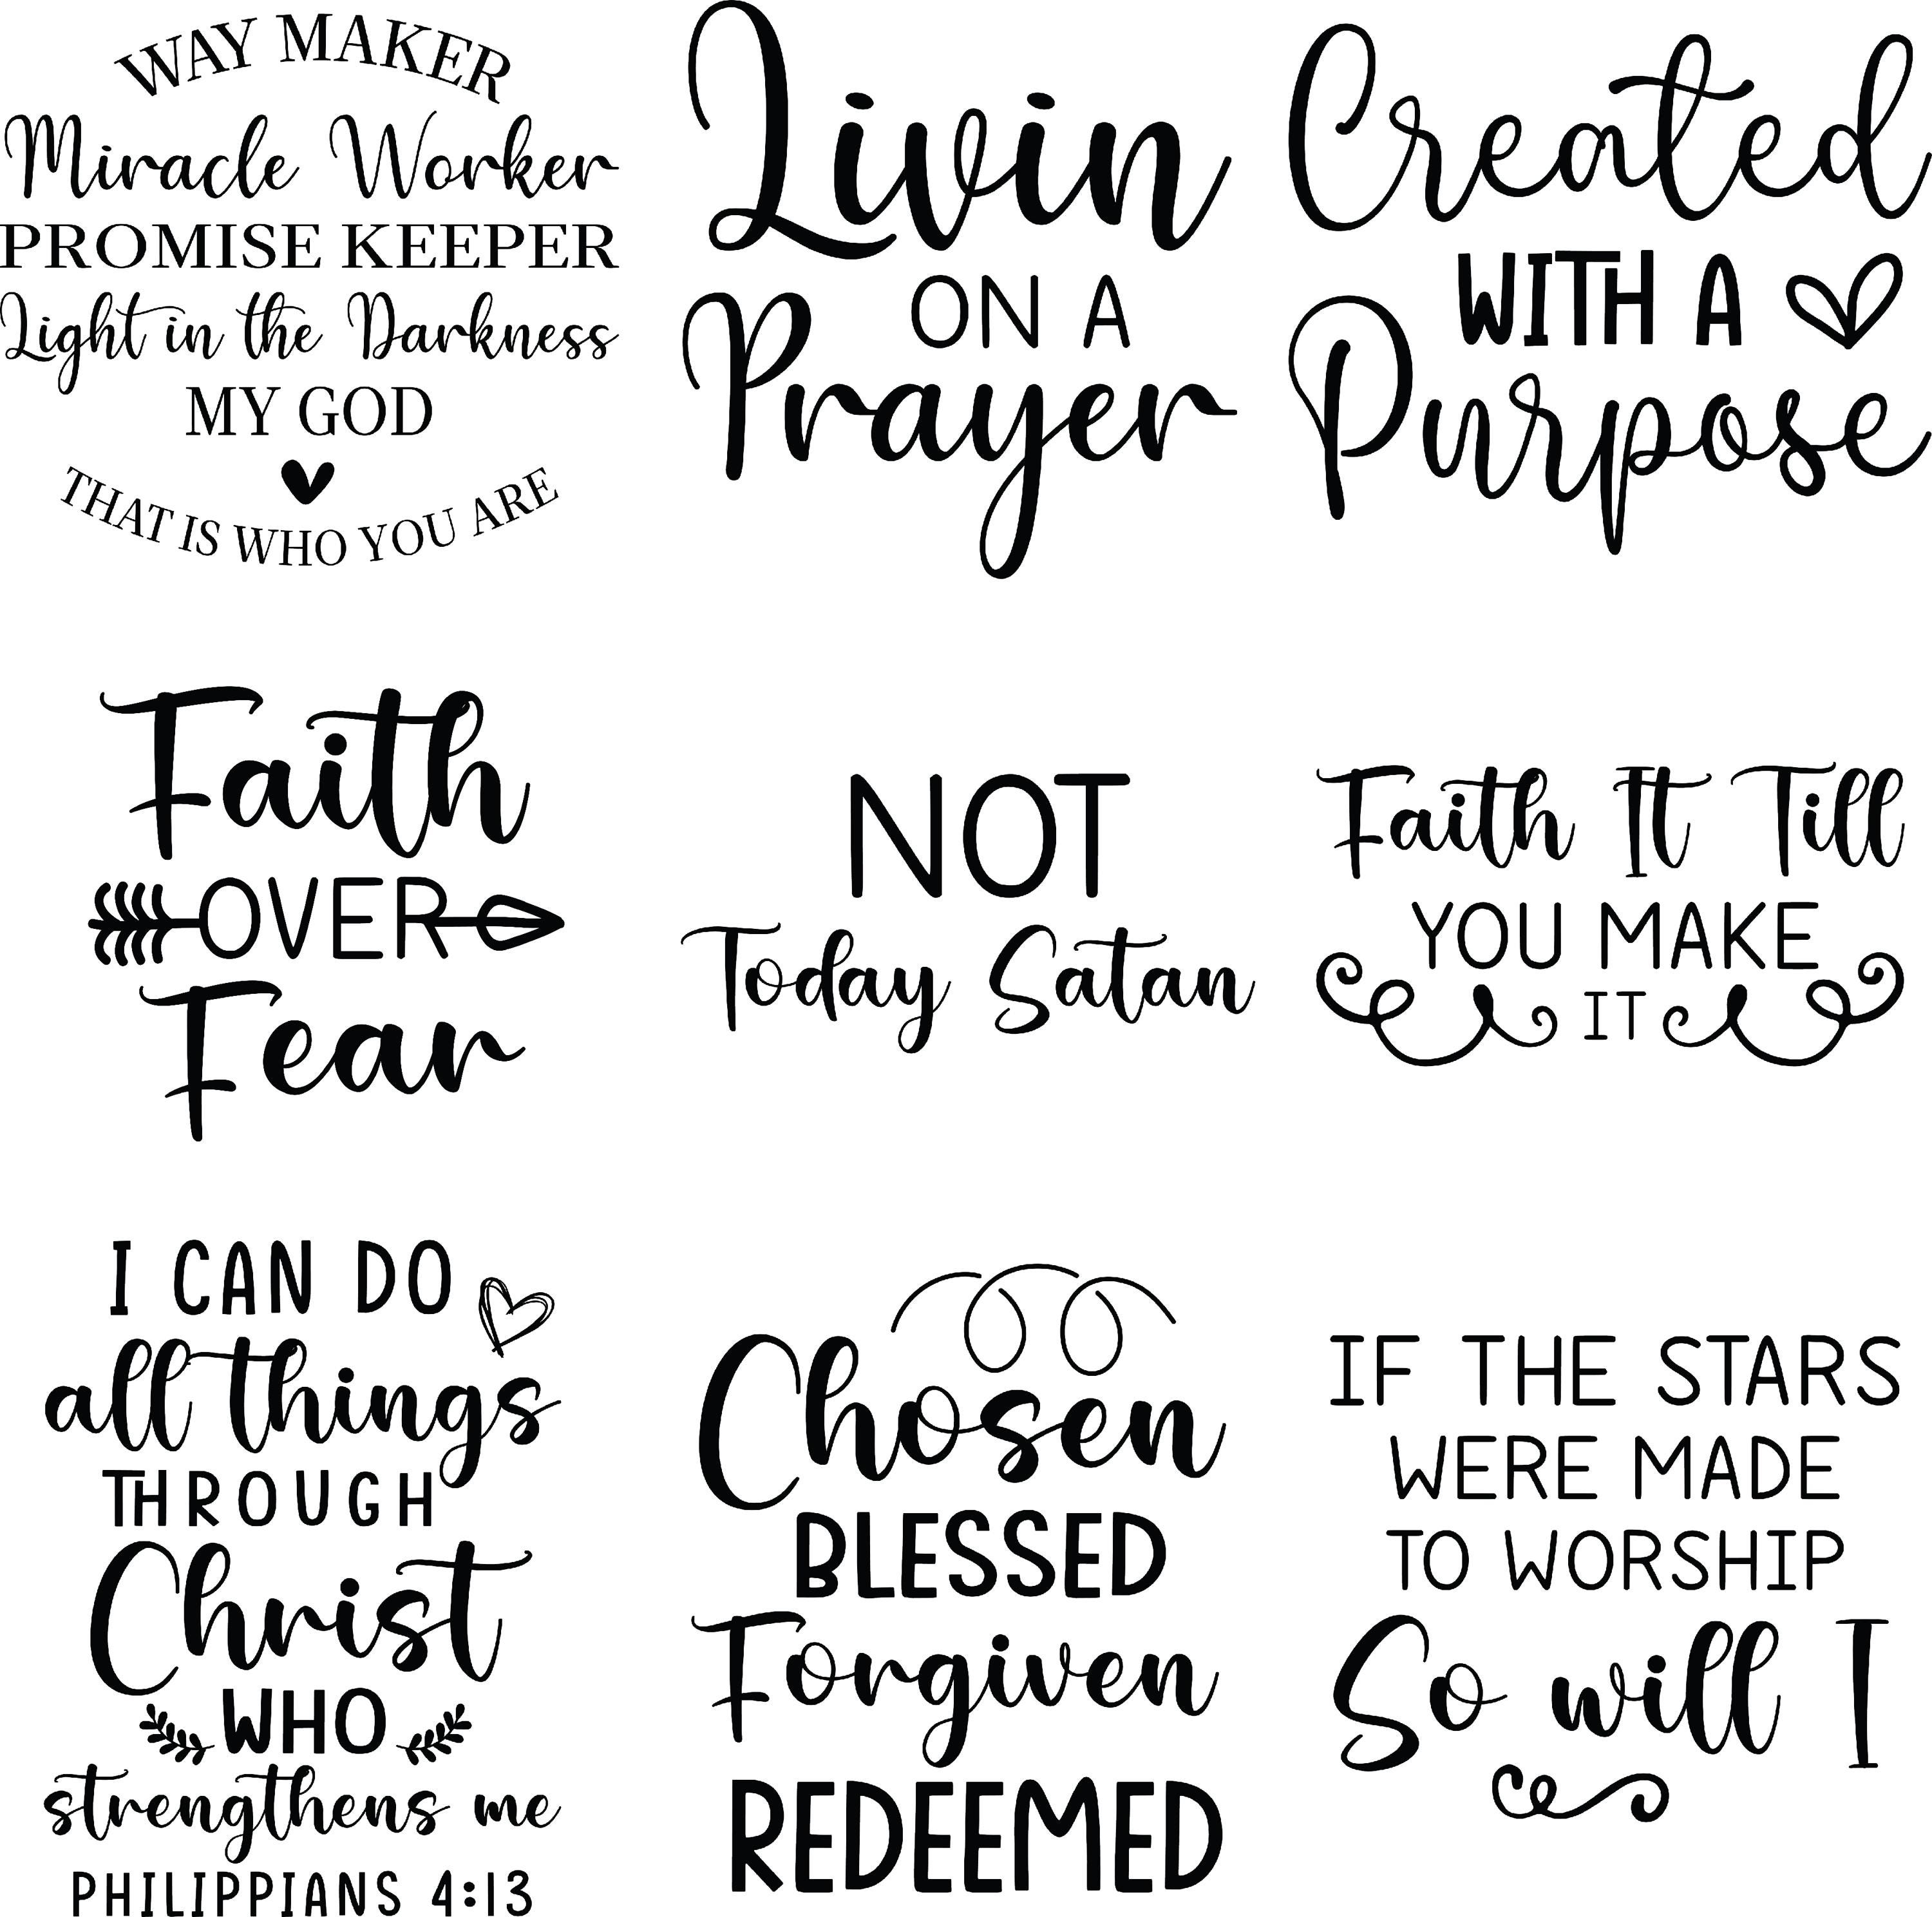 WAY MAKER
Miracle Worker
PROMISE KEEPER
Light in the Darkness
MY GOD
THAT IS WHO YOU ARE
Livin
ON A
Prayer
Created
WITH A
Purpose
Faith
OVER
Fear
NOT
Today Satan
Faith It Till
YOU MAKE
IT
I CAN DO
all things
THROUGH
Christ
WHO
strengthens me
PHILIPPIANS 4:13
Chosen
BLESSED
Forgiven
REDEEMED
IF THE STARS
WERE MADE
TO WORSHIP
So will I